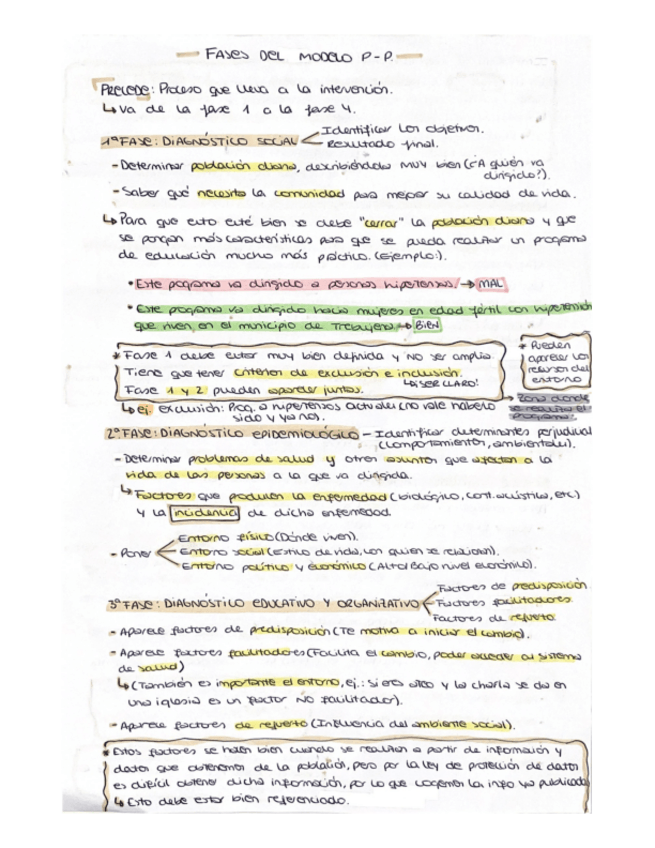 FASES DEL MODELO P-P.
PRECEDE: Proceso que lleva a la intervención.
↳ Va de la fase 1 a la fase 4.
1ª FASE: DIAGNÓSTICO SOCIAL
Identificar los objetivos.
Resultado final.
- Determinar población diana, describiéndola MUY bien (¿A quién va
dirigido?).
- Saber qué necesita la comunidad para mejorar su calidad de vida.
↳ Para que esto esté bien se debe "cerrar" la población diana y que
se pongan más características para que se pueda realizar un programa
de educación mucho más práctico. (ejemplo:).
• Este programa va dirigido a personas hipertensas. → MAL
• Este programa va dirigido hacia mujeres en edad fértil con hipertensión
que viven en el municipio de → BIEN
* Fase 1 debe estar muy bien definida y NO ser amplia.
Tiene que tener criterios de exclusión e inclusión.
↳ ¡SER CLARO!
Fase 1 y 2 pueden aparecer juntos.
* Pueden
aparecer los
recursos del
entorno
↳ ej. exclusión: Prog. a hipertensos actuales (no vale haberlo
sido y ya no).
Zona donde
se realiza el
programa.
2ª FASE: DIAGNÓSTICO EPIDEMIOLÓGICO - Identificar determinantes perjudicial
(comportamientos, ambientales).
- Determinar problemas de salud y otros asuntos que afectan a la
vida de las personas a la que va dirigida.
↳ Factores que producen la enfermedad (biológico, etc)
y la incidencia de dicha enfermedad.
- Poner
Entorno físico (Dónde viven).
Entorno social (estilo de vida, con quien se relacionan).
Entorno político y económico (Alto/Bajo nivel económico).
3ª FASE: DIAGNÓSTICO EDUCATIVO Y ORGANIZATIVO
Factores de predisposición
Factores facilitadores
Factores de refuerzo
- Aparece factores de predisposición (Te motiva a iniciar el cambio).
- Aparece factores facilitadores (Facilita el cambio, poder acceder al sistema
de salud)
↳ (También es importante el entorno, ej.: si eres ateo y la charla se da en
una iglesia es un factor NO facilitador).
- Aparece factores de refuerzo (Influencia del ambiente social).
* Estos factores se hacen bien cuando se realizan a partir de información y
datos que obtenemos de la población, pero por la ley de protección de datos
es difícil obtener dicha información, por lo que cogemos la info ya publicada
↳ Esto debe estar bien referenciado.